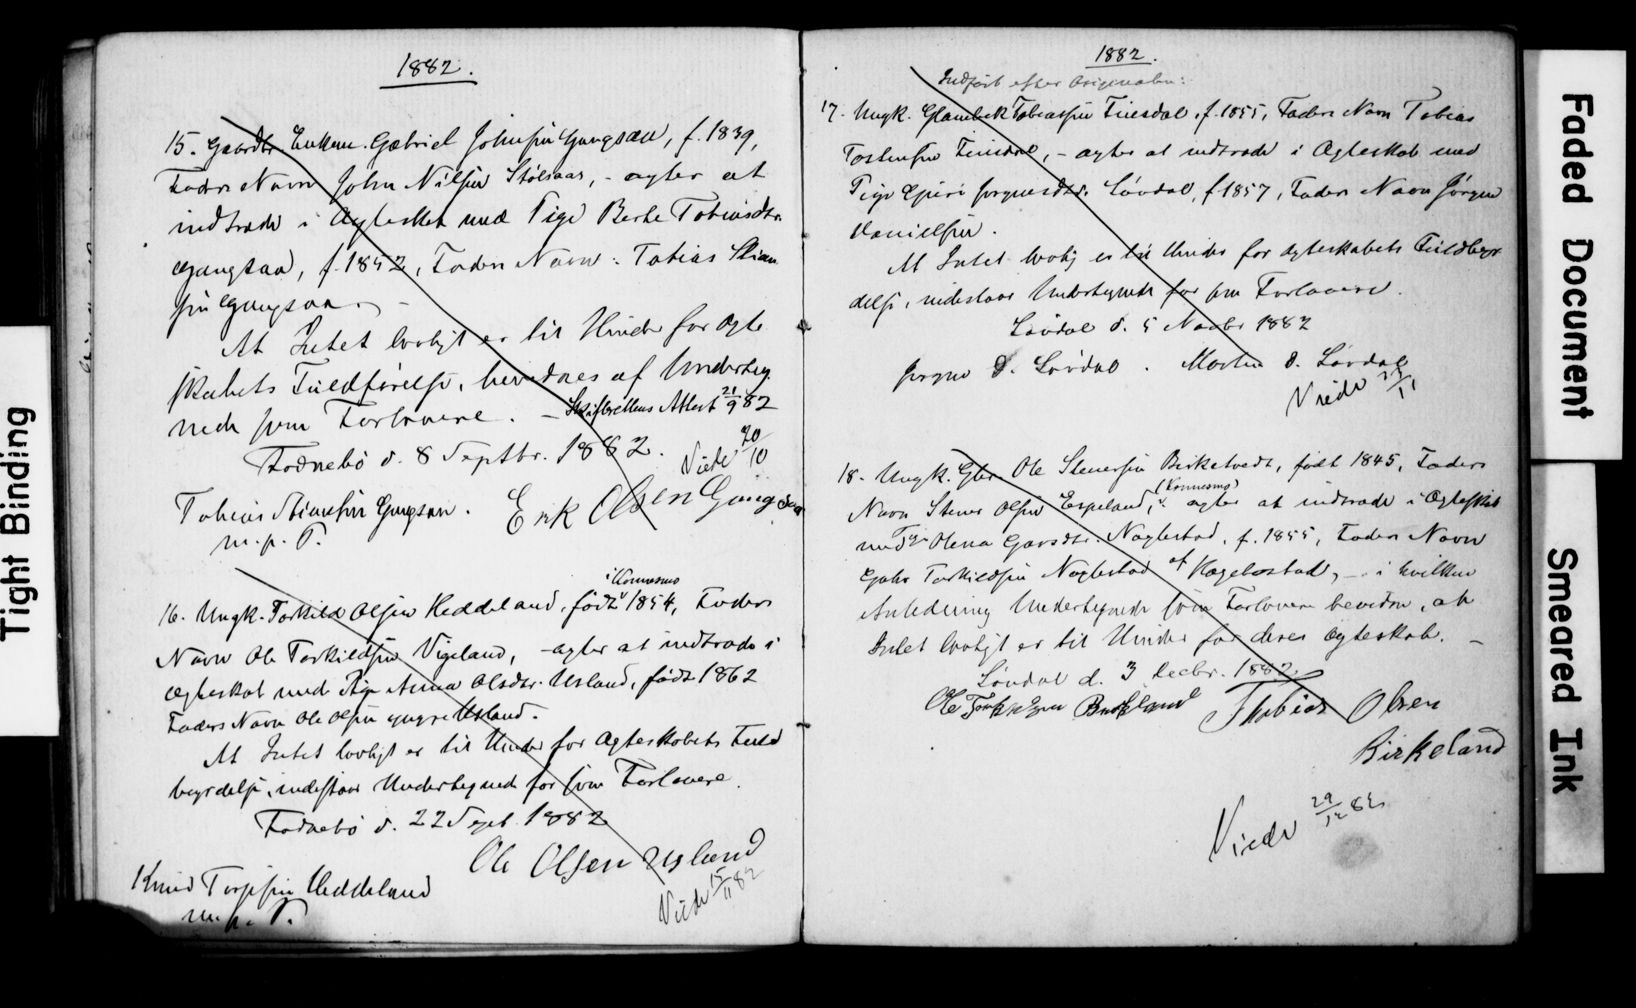 1882.
15. Gaardbr. Enkem. Gabriel Johnsen Gangsaa, f. 1839,
Faders Navn John Nilsen Stølsaas, - agter at
indtræde i Ægteskab med Pige Berte Tobiasdtr.
Gangsaa, f. 1852, Faders Navn: Tobias Stian
sen Gangsaa. -
At Intet lovligt er til Hinder for Ægte
skabets Fuldførelse, bevidnes af Underteg
nede som Forlovere. - Skifterettens Attest 21/9 82
Fodnebø d. 8 Septbr. 1882.
Viede 20/10
Tobias Stiansen Gangsaa.
m. p. P.
Erik Olsen Gangsaa
i Konnesmo
16. Ungk. Torkild Olsen Heddeland, født 1854, Faders
Navn Ole Torkildsen Vigeland, - agter at indtræde i
Ægteskab med Pige Anna Olsdtr. Usland, født 1862
Faders Navn Ole Olsen yngre Usland.
At Intet lovligt er til Hinder for Ægteskabets Fuld
byrdelse, indestaar Undertegnede for som Forlovere.
Fodnebø d. 22 Sept. 1882
Ole Olsen Usland
Knud Torjesen Heddeland
m. p. P.
Viede 15/11 82
1882.
Indført efter Originalen:
17. Ungk. Tobiassen Finsdal, f. 1855, Faders Navn Tobias
Tostensen Finsdal, - agter at indtræde i Ægteskab med
Pige Jørgensdtr. Løvdal, f. 1857, Faders Navn Jørgen
Danielsen.
At Intet lovlig er til Hinder for Ægteskabets Fuldbyr
delse, indestaar Undertegnede for som Forlovere.
Løvdal d. 5 Novbr 1882
Jørgen D. Løvdal. Morten D. Løvdal
Viede
18. Ungk. Gbr. Ole Stenersen Birketvedt, født 1845, Faders
(Konnesmo)
Navn Stener Olsen Espeland, agter at indtræde i Ægteskab
med Pige Olena Navlestad, f. 1855, Faders Navn
Torkildsen Navlestad af Hægebostad, - i hvilken
Anledning Undertegnede som Forlovere bevidne, at
Intet lovligt er til Hinder for deres Ægteskab. -
Løvdal d. 3 Decbr. 1882.
Ole
Thobias Olsen
Birkeland
Viede 29/12 82
Tight Binding
Faded Document
Smeared Ink